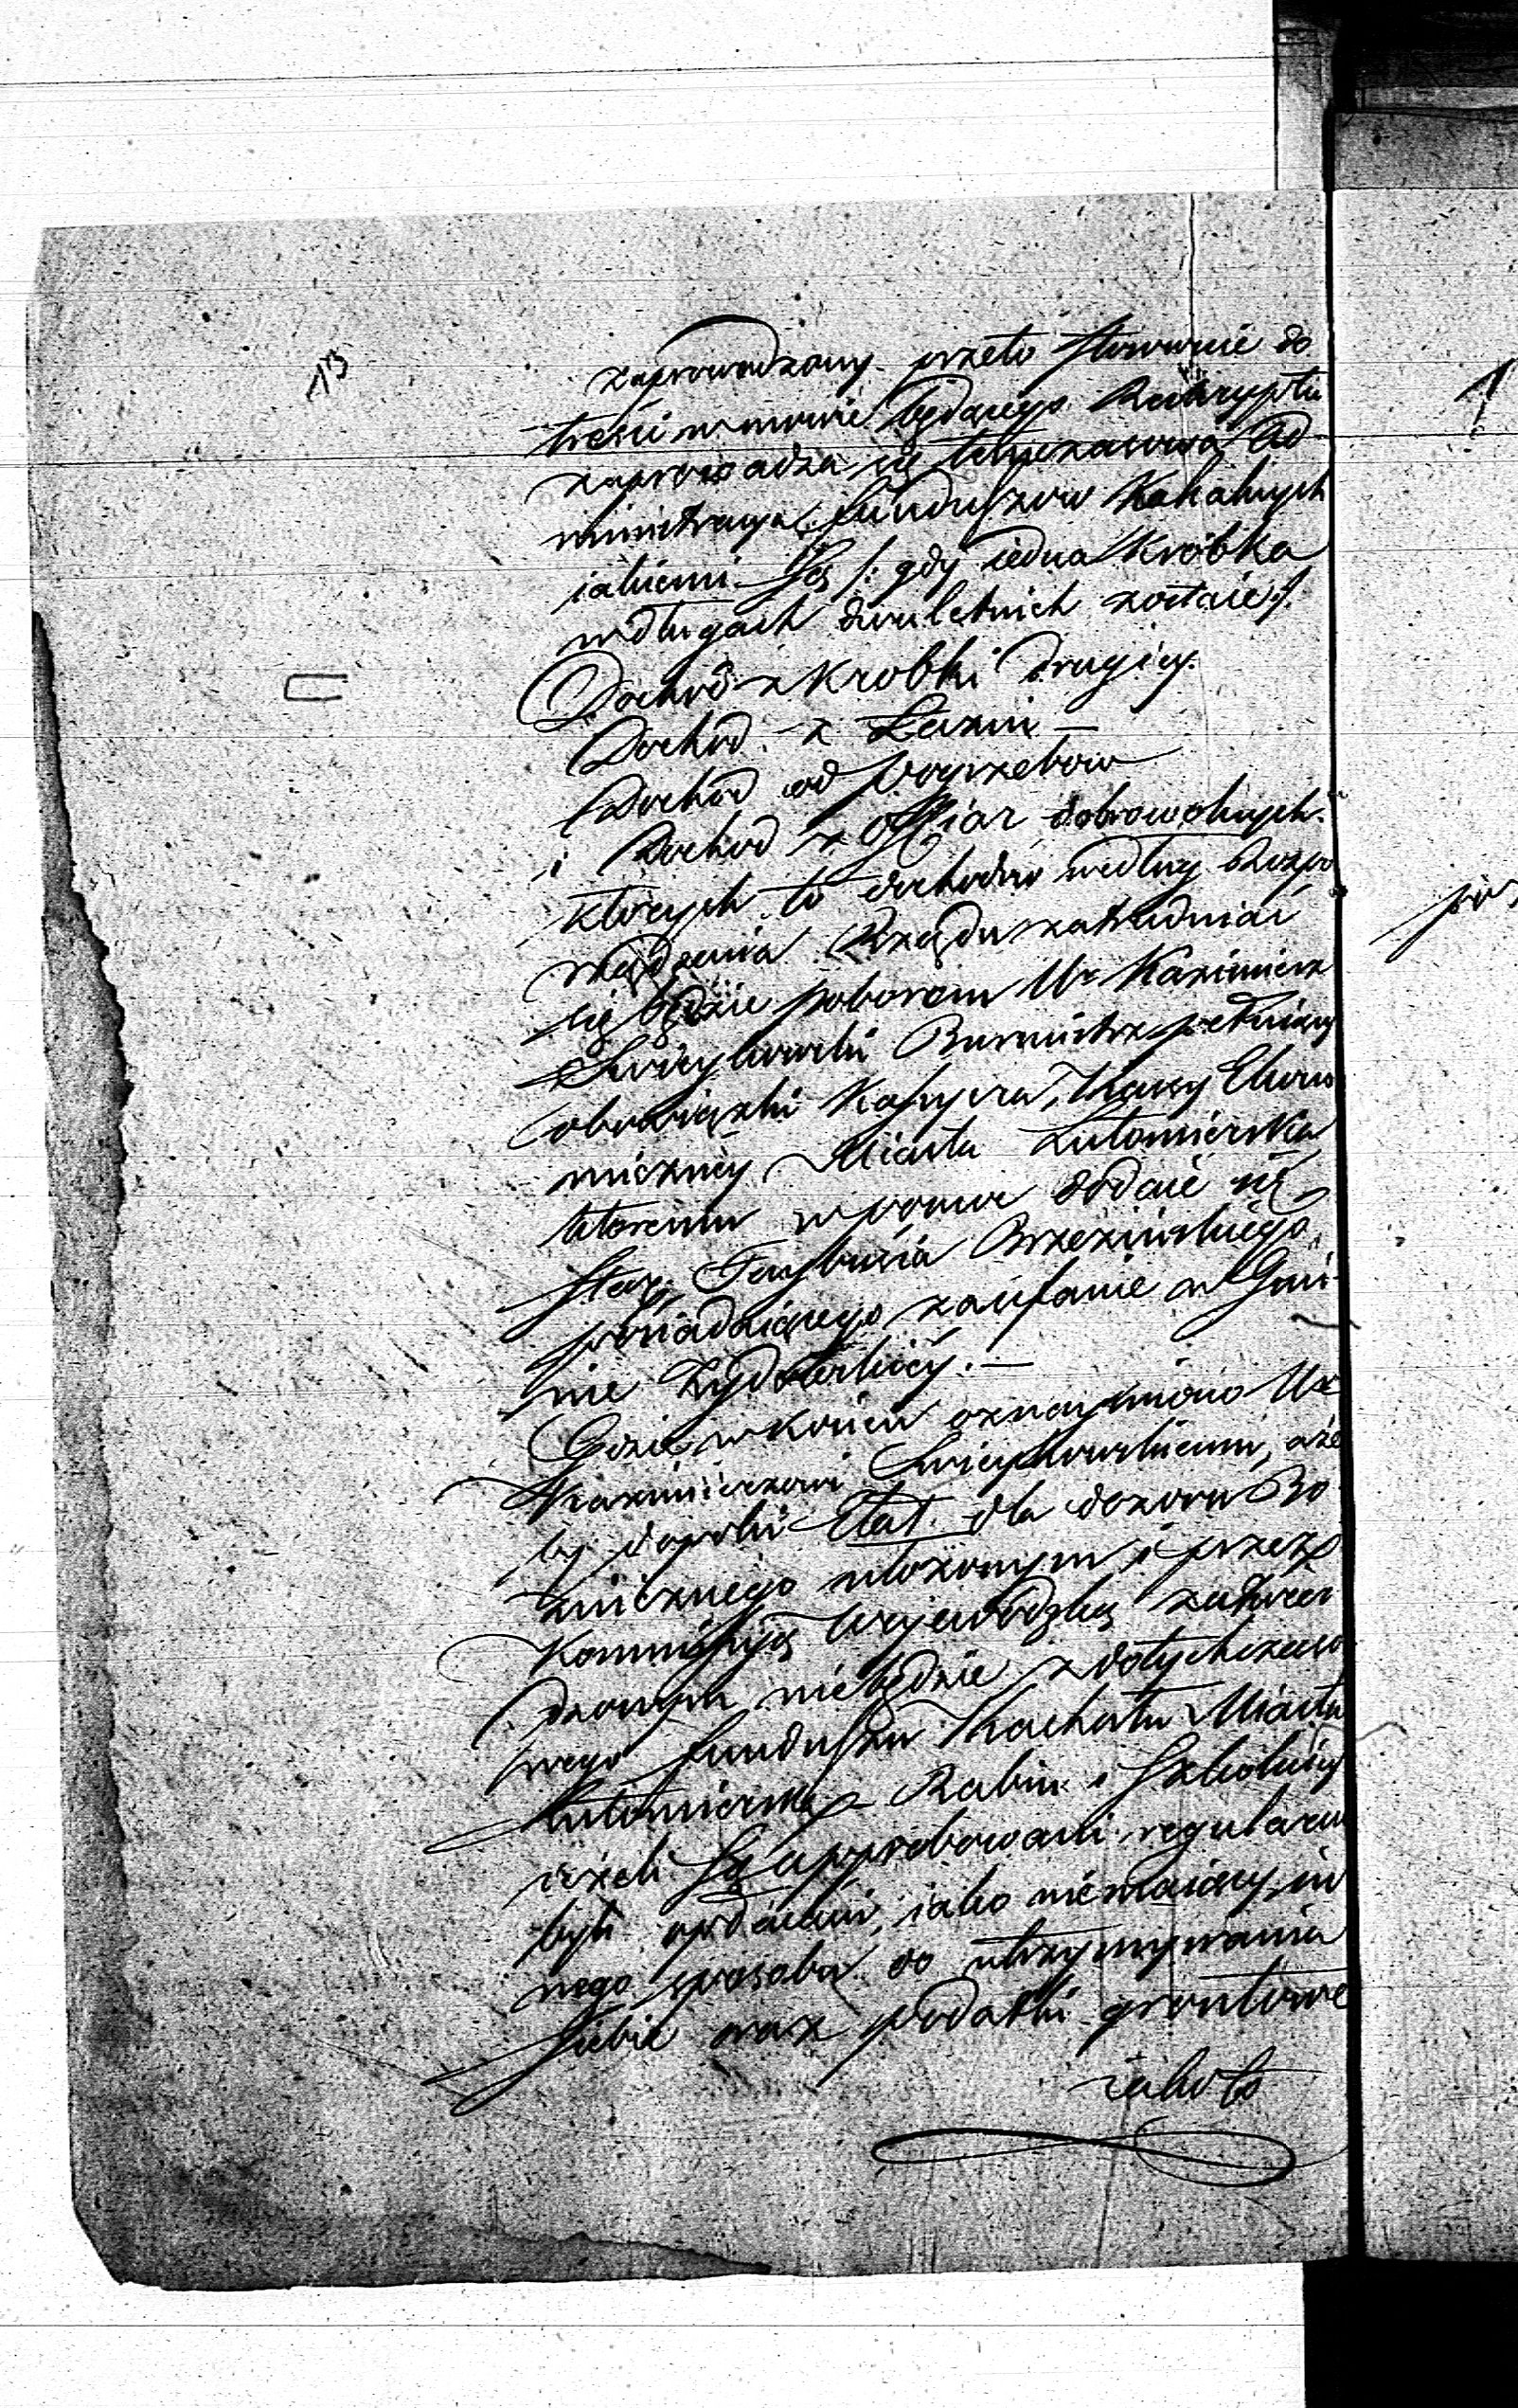 13
zaprowadzony przeto stosownie do
treści w mowie będącego Reskryptu
zaprowadza się tymczasowa Ad
ministracya funduszow Kahalnych
iakiemi są /: gdy iedna Krobka
w długach dwuletnich zostaie :/
Dochod z Krobki drugiey.
Dochod z Łazni —
Dochod od Pogrzebow
i Dochod z Offiar dobrowolnych.
których to dochodow według Rozpo
rządzenia Rządu zatrudniać
się będzie poborem Wr Kazimierz
Burmistrz pełniący
obowiązki Kassyera, Kassy Ekono
miczney Miasta Lutomierska
któremu w pomoc dodaie się
Star. Brzezinskiego,
posiadaiącego zaufanie w Gmi-
nie Żydowskiey. —
Gdzie w końcu oznaymiono Wr
Kazimierzowi aże
by dopoki Etat dla dozoru Bo
żniczego ułożonym i przez
Kommissyą Wojewodzką zatwier
dzonym niebędzie z dotychczaso
wego funduszu Kachału Miasta
Lutomierska Rabin i Szkolnicy
ieżeli są approbowani regularnie
byli opłacani, iako niemaiący in
nego sposobu do utrzymywania
siebie oraz podatki gruntowe
iakoto